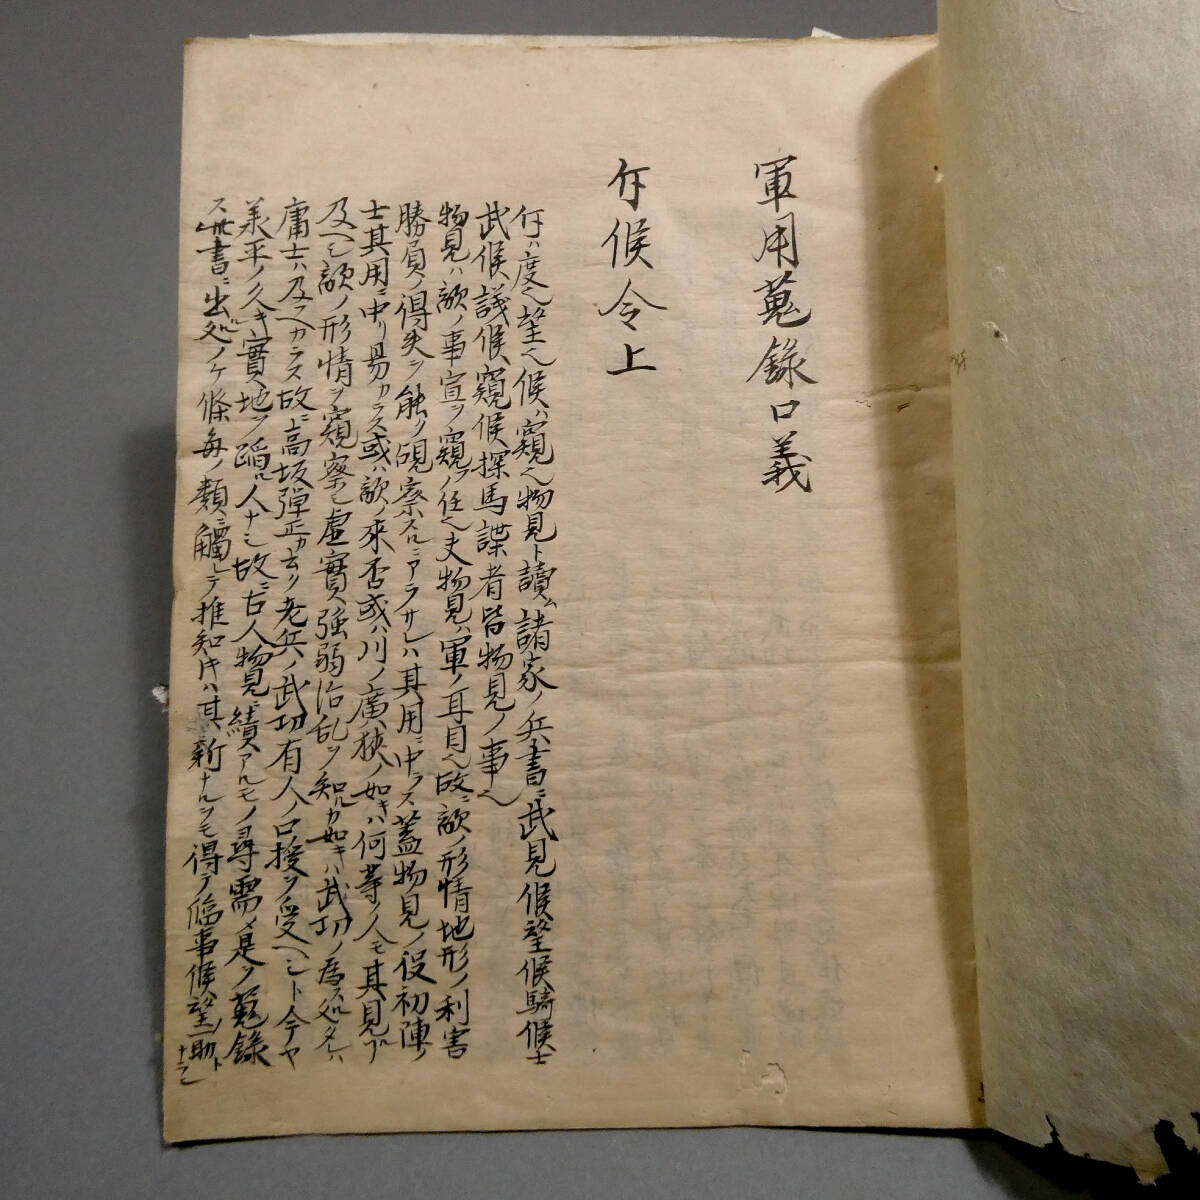 軍用蒐録口義
斥候令上
斥ハ度也望也候ハ窺也物見ト讀ム諸家ノ兵書ニ武見候望候騎候士
武候議候窺候探馬諜者皆物見ノ事也
物見ハ敵ノ事宜ヲ窺フノ任也夫物見ハ軍ノ耳目也故ニ敵ノ形情地形ノ利害
勝負ノ得失ヲ能ク硯察スルニアラサレハ其用ニ中ラス蓋物見ノ役初陣ノ
士其用ニ中リ易カラス或ハ敵ノ來否或ハ川ノ廣狭ノ如キハ何等ノ人モ其見ル
及ヘシ敵ノ形情ヲ窺察シ虚實強弱治乱ヲ知ルカ如キハ武功ノ為ス処タレハ
庸士ハ及フヘカラス故ニ高坂弾正カ云ク老兵ノ武功有人ノ口授ヲ受ヘシト今ヤ
羕平ノ久キ實地ヲ蹈ム人ナシ故ニ古人物見ニ績アルモノ尋需メ是ヲ蒐録
ス此書ニ出処ノケ條毎ノ類ニ觸レテ推知キハ其新ナルヲモ得テ臨事候望ノ助ト
ナラン